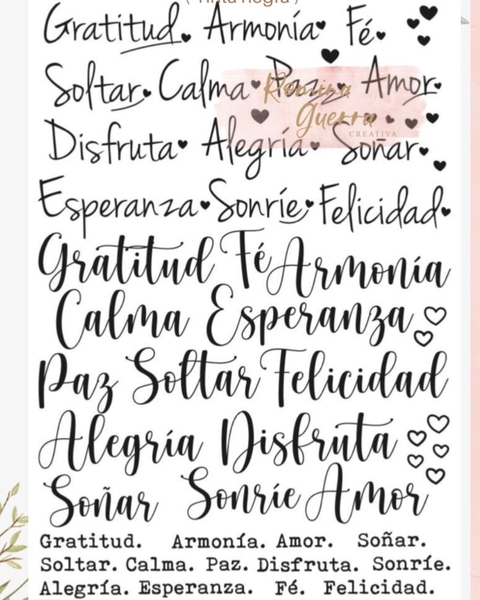 Gratitud. Armonía Fé.
Soltar Calma Paz Amor
Guerra
CREATIVA
Disfruta Alegría Soñar
Esperanza Sonríe Felicidad
Gratitud Fé Armonía
Calma Esperanza
Paz Soltar Felicidad
Alegría Disfruta
Soñar Sonríe Amor
Gratitud. Armonía. Amor. Soñar.
Soltar. Calma. Paz. Disfruta. Sonríe.
Alegría. Esperanza. Fé. Felicidad.